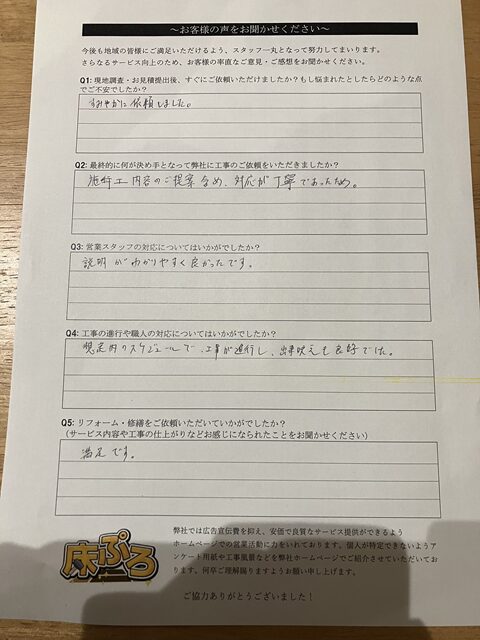 ～お客様の声をお聞かせください～
今後も地域の皆様にご満足いただけるよう、スタッフ一丸となって努力してまいります。
さらなるサービス向上のため、お客様の率直なご意見・ご感想をお聞かせください。
Q1: 現地調査・お見積提出後、すぐにご依頼いただけましたか？もし悩まれたとしたらどのような点
でご不安でしたか？
すみやかに依頼しました。
Q2: 最終的に何が決め手となって弊社に工事のご依頼をいただきましたか？
施工内容のご提案含め、対応が丁寧であったため。
Q3: 営業スタッフの対応についてはいかがでしたか？
説明がわかりやすく良かったです。
Q4: 工事の進行や職人の対応についてはいかがでしたか？
想定内のスケジュールで、工事が進行し、出来映えも良好でした。
Q5: リフォーム・修繕をご依頼いただいていかがでしたか？
（サービス内容や工事の仕上がりなどお感じになられたことをお聞かせください）
満足です。
床ぷろ
弊社では広告宣伝費を抑え、安価で良質なサービス提供ができるよう
ホームページでの営業活動に力をいれております。個人が特定できないようア
ンケート用紙や工事風景などを弊社ホームページでご紹介させていただいてお
ります。何卒ご理解賜りますようお願い申し上げます。
ご協力ありがとうございました！